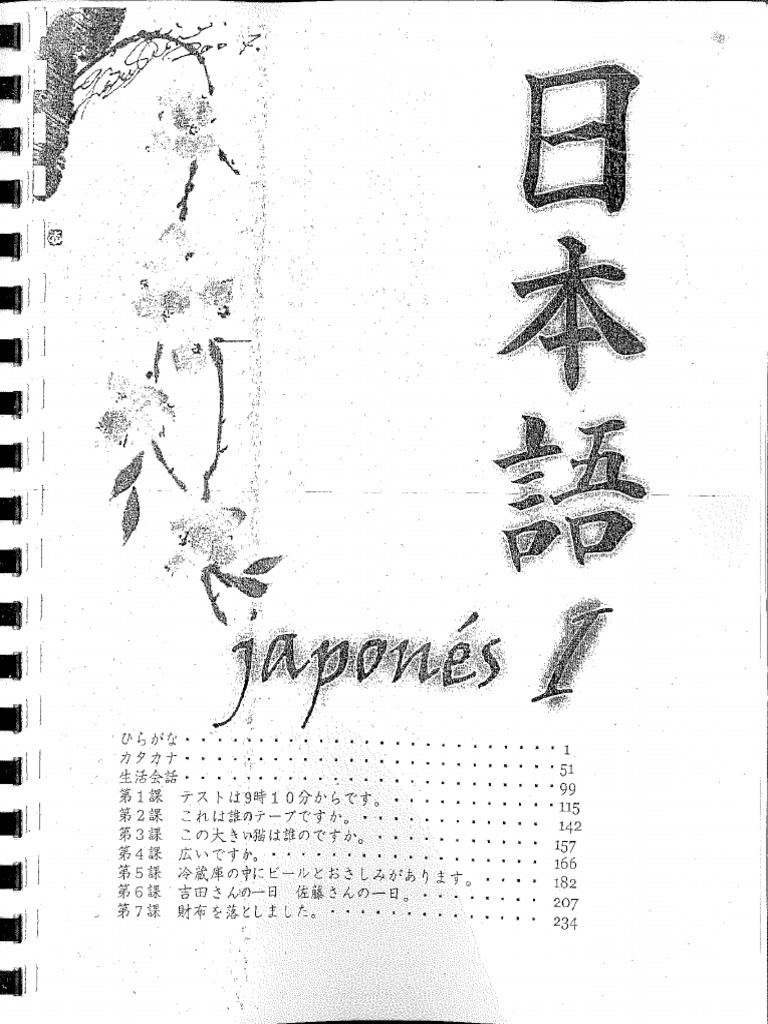 日本語
japonés I
ひらがな・・・・・・・・・・・・・・・・・・・・・・・・・・1
カタカナ・・・・・・・・・・・・・・・・・・・・・・・・・・51
生活会話・・・・・・・・・・・・・・・・・・・・・・・・・・99
第1課 テストは9時10分からです。・・・・・・・・・・115
第2課 これは誰のテープですか。・・・・・・・・・・・・142
第3課 この大きい猫は誰のですか。・・・・・・・・・・・157
第4課 広いですか。・・・・・・・・・・・・・・・・・・・166
第5課 冷蔵庫の中にビールとおさしみがあります。・・・・182
第6課 吉田さんの一日 佐藤さんの一日。・・・・・・・・207
第7課 財布を落としました。・・・・・・・・・・・・・・234